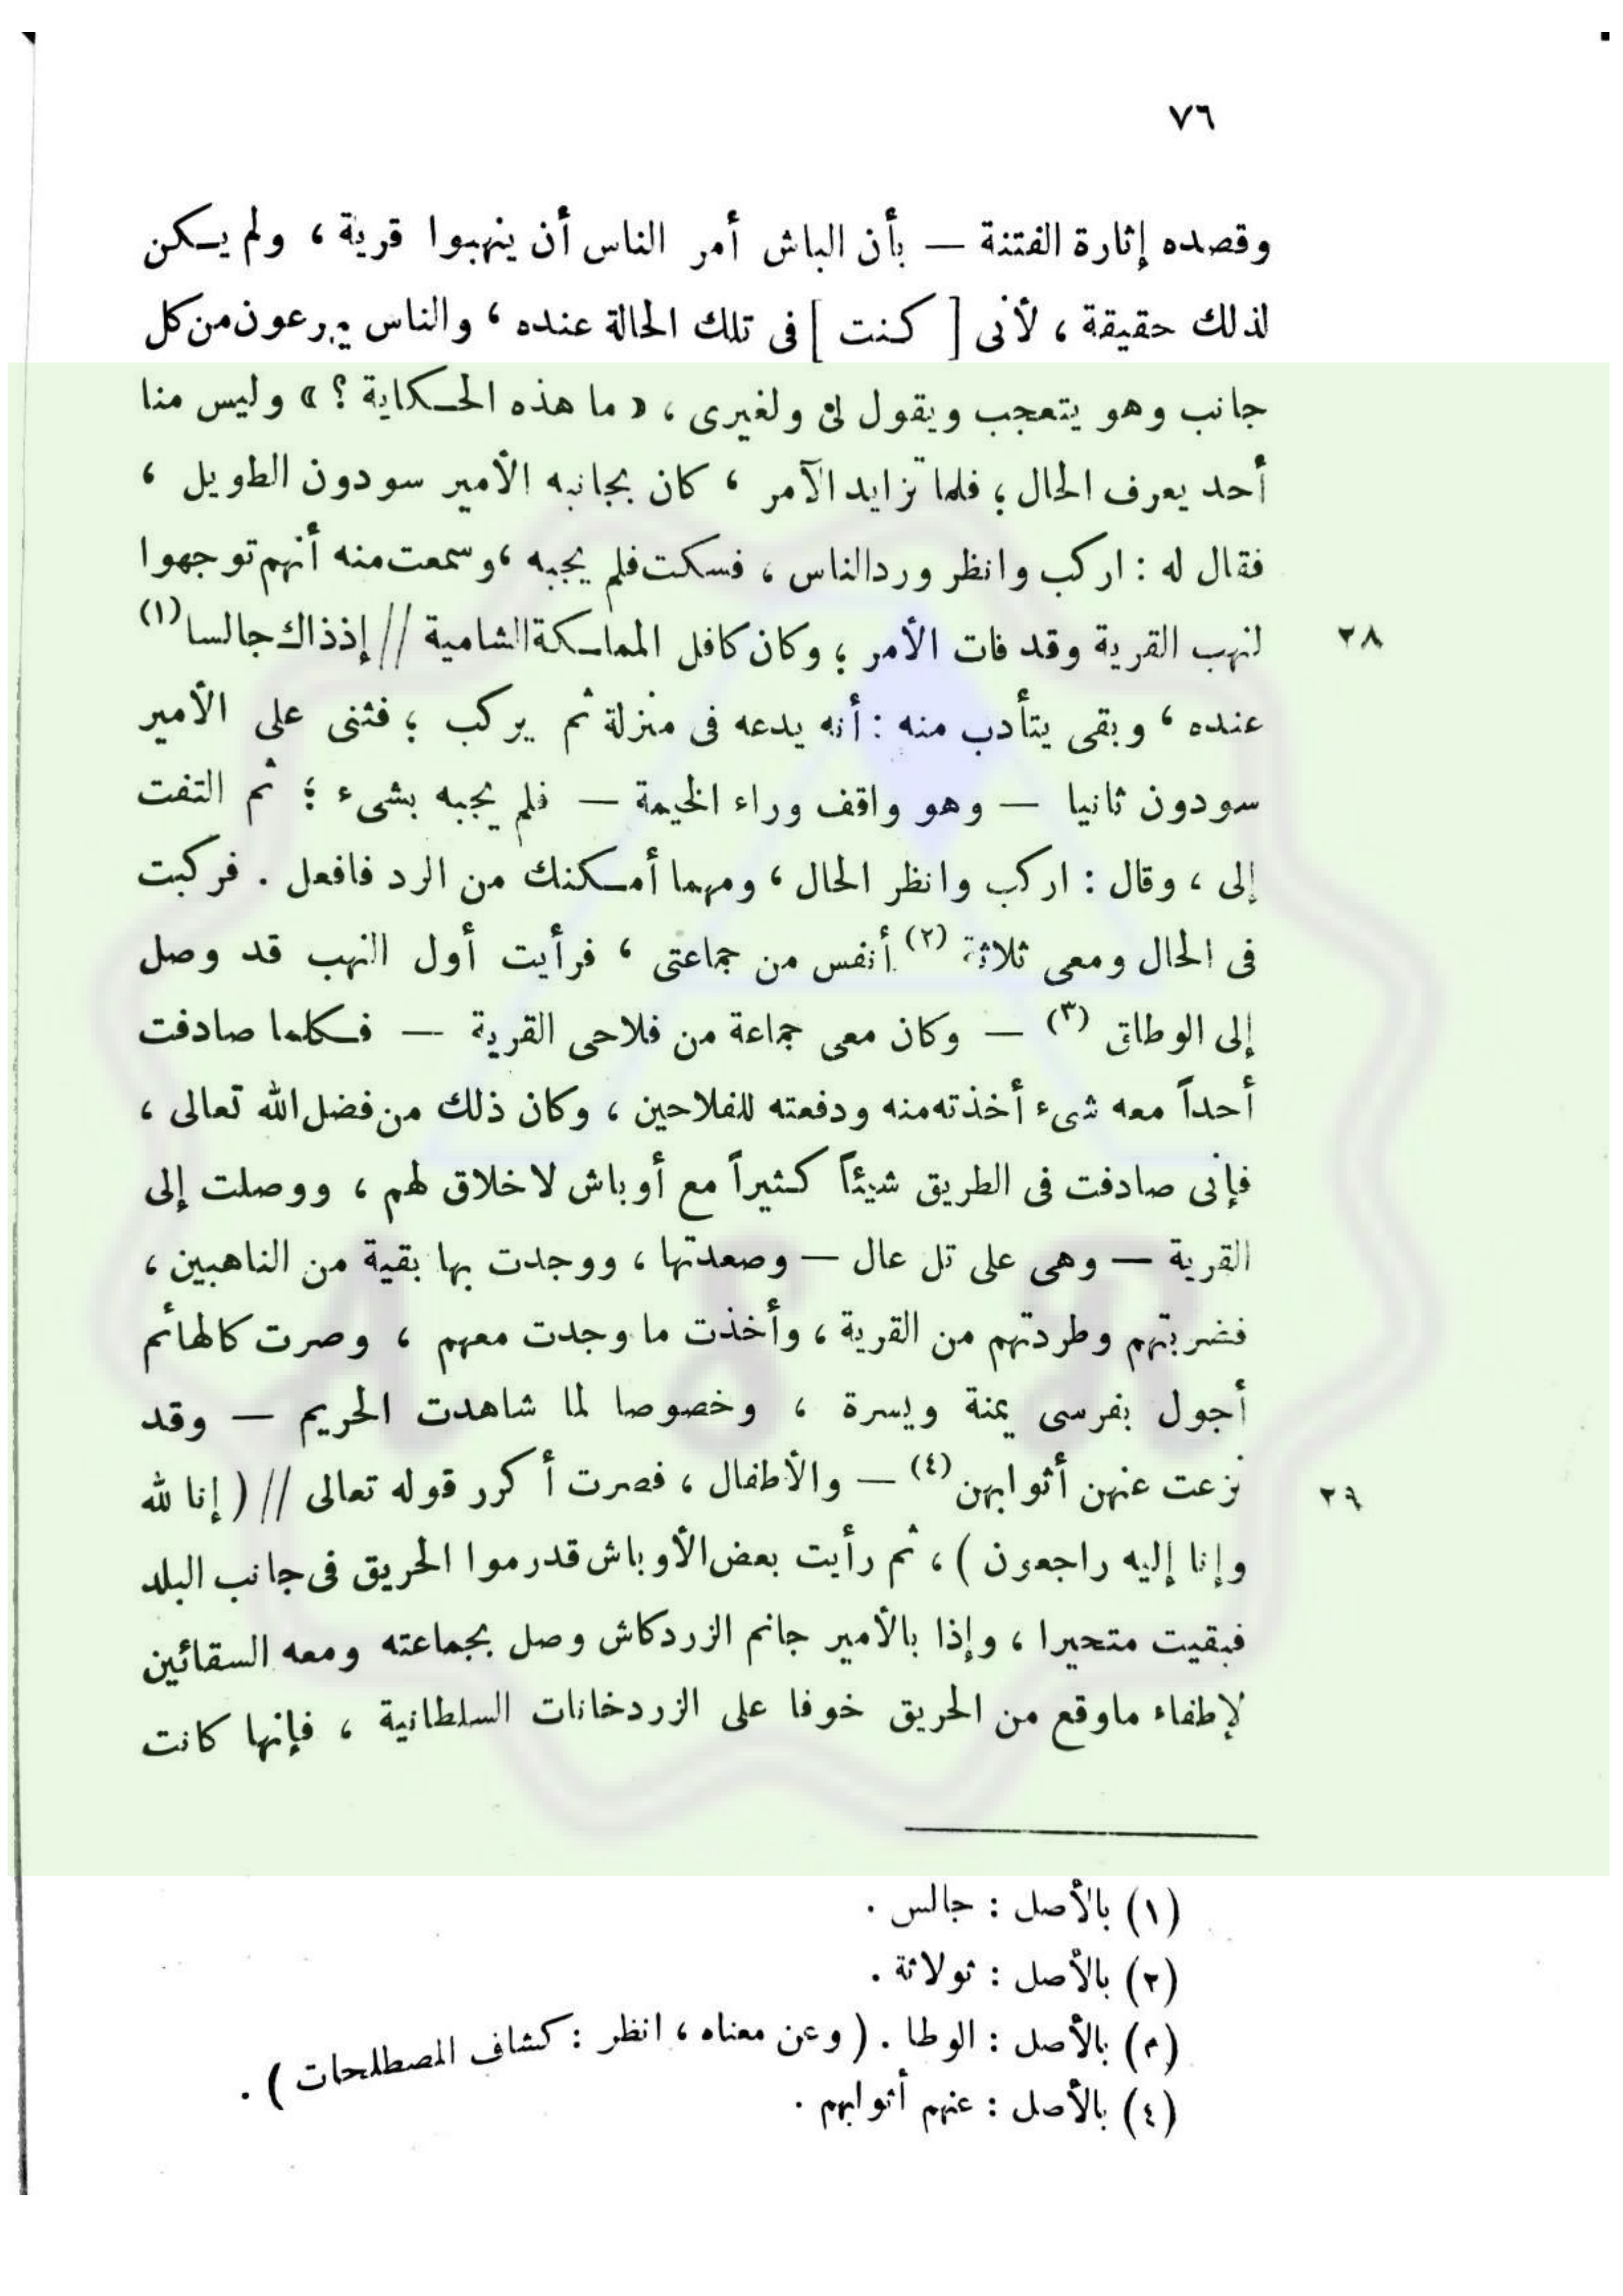 ٧٦
وقصده إثارة الفتنة — بأن الباش أمر الناس أن ينهبوا قرية ، ولم يكن
لذلك حقيقة ، لأنى [ كنت ] فى تلك الحالة عنده ، والناس يهرعون من كل
جانب وهو يتعجب ويقول لى ولغيرى ، « ما هذه الحكاية ؟ » وليس منا
أحد يعرف الحال ؛ فلما تزايد الأمر ، كان بجانبه الأمير سودون الطويل ،
فقال له : اركب وانظر ورد الناس ، فسكت فلم يجبه ، وسمعت منه أنهم توجهوا
لنهب القرية وقد فات الأمر ؛ وكان كافل المملكة الشامية // إذ ذاك جالسا (١)
٢٨
عنده ، وبقى يتأدب منه : أنه يدعه فى منزلة ثم يركب ؛ فثنى على الأمير
سودون ثانيا — وهو واقف وراء الخيمة — فلم يجبه بشىء ؛ ثم التفت
إلى ، وقال : اركب وانظر الحال ، ومهما أمكنك من الرد فافعل . فركبت
فى الحال ومعى ثلاثة (٢) أنفس من جماعتى ، فرأيت أول النهب قد وصل
إلى الوطاق (٣) — وكان معى جماعة من فلاحى القرية — فكلما صادفت
أحداً معه شىء أخذته منه ودفعته للفلاحين ، وكان ذلك من فضل الله تعالى ،
فإنى صادفت فى الطريق شيئاً كثيراً مع أوباش لاخلاق لهم ، ووصلت إلى
القرية — وهى على تل عال — وصعدتها ، ووجدت بها بقية من الناهبين ،
فضربتهم وطردتهم من القرية ، وأخذت ما وجدت معهم ، وصرت كالهائم
أجول بفرسى يمنة ويسرة ، وخصوصا لما شاهدت الحريم — وقد
نزعت عنهن أثوابهن (٤) — والأطفال ، فصرت أكرر قوله تعالى // ( إنا لله
٢٩
وإنا إليه راجعون ) ، ثم رأيت بعض الأوباش قد رموا الحريق فى جانب البلد
فبقيت متحيرا ، وإذا بالأمير جانم الزردكاش وصل بجماعته ومعه السقائين
لإطفاء ماوقع من الحريق خوفا على الزردخانات السلطانية ، فإنها كانت
(١) بالأصل : جالس .
(٢) بالأصل : ثولاثة .
(٣) بالأصل : الوطا . ( وعن معناه ، انظر : كشاف المصطلحات ) .
(٤) بالأصل : عنهم أثوابهم .